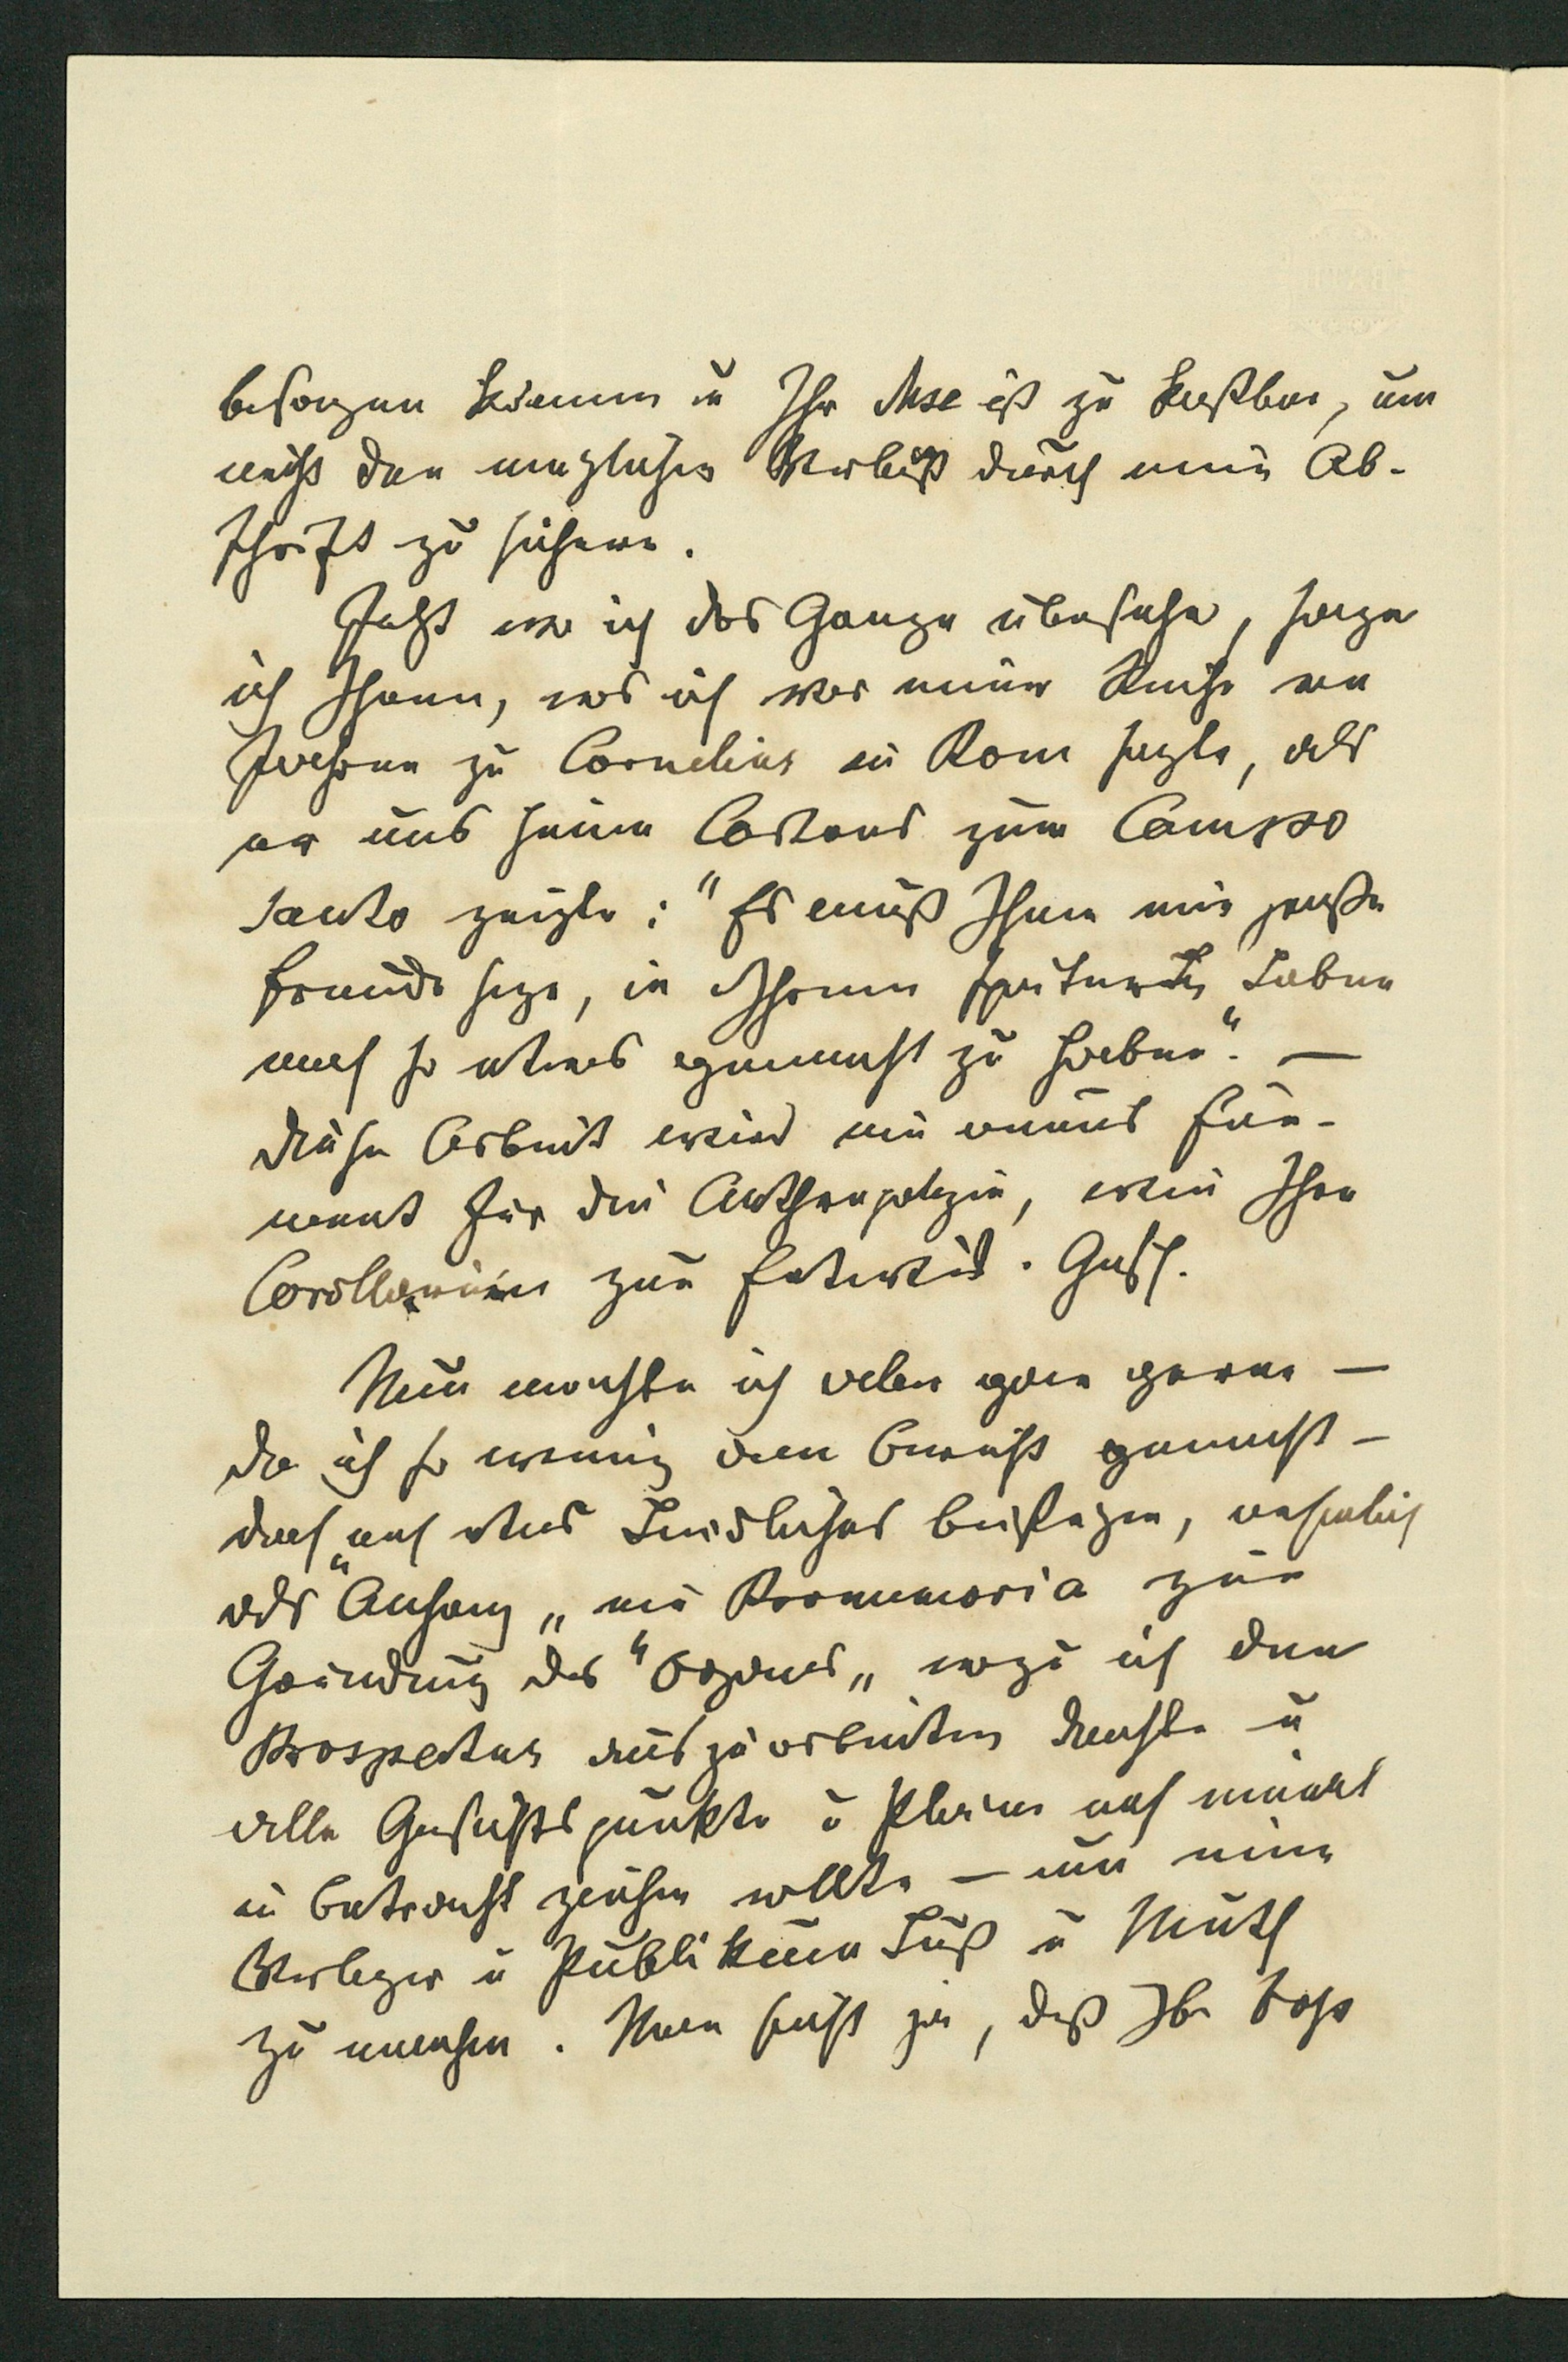 besorgen können u Ihr Msc ist zu kostbar, um
nicht den möglichen Verlust durch eine Ab-
schrift zu sichern.
Jetzt wo ich das Ganze übersehe, sage
ich Ihnen, was ich vor einer Reihe von
Jahren zu Cornelius in Rom sagte, als
er uns seine Cartons zum Campo
santo zeigte: "Es muß Ihnen eine große
Freude sein, in Ihrem späteren Leben
noch so etwas gemacht zu haben". —
Diese Arbeit wird ein neues Fun-
ment für die Anthropologie, wie Ihre
Corollarien zur Entwick. Gesch.
Nun möchte ich aber gar gerne —
da ich so wenig von Gewicht gemacht —
doch auch etwas Leidliches beifügen, nehmlich
als "Anhang" ein Promemoria zur
Gründung des "Organes" wozu ich den
Prospectus auszuarbeiten dachte u
alle Gesichtspunkte u Pläne noch einmal
in Betracht ziehen wollte — um einem
Verleger u Publikum Lust u Muth
zu machen. Man sieht ja, daß